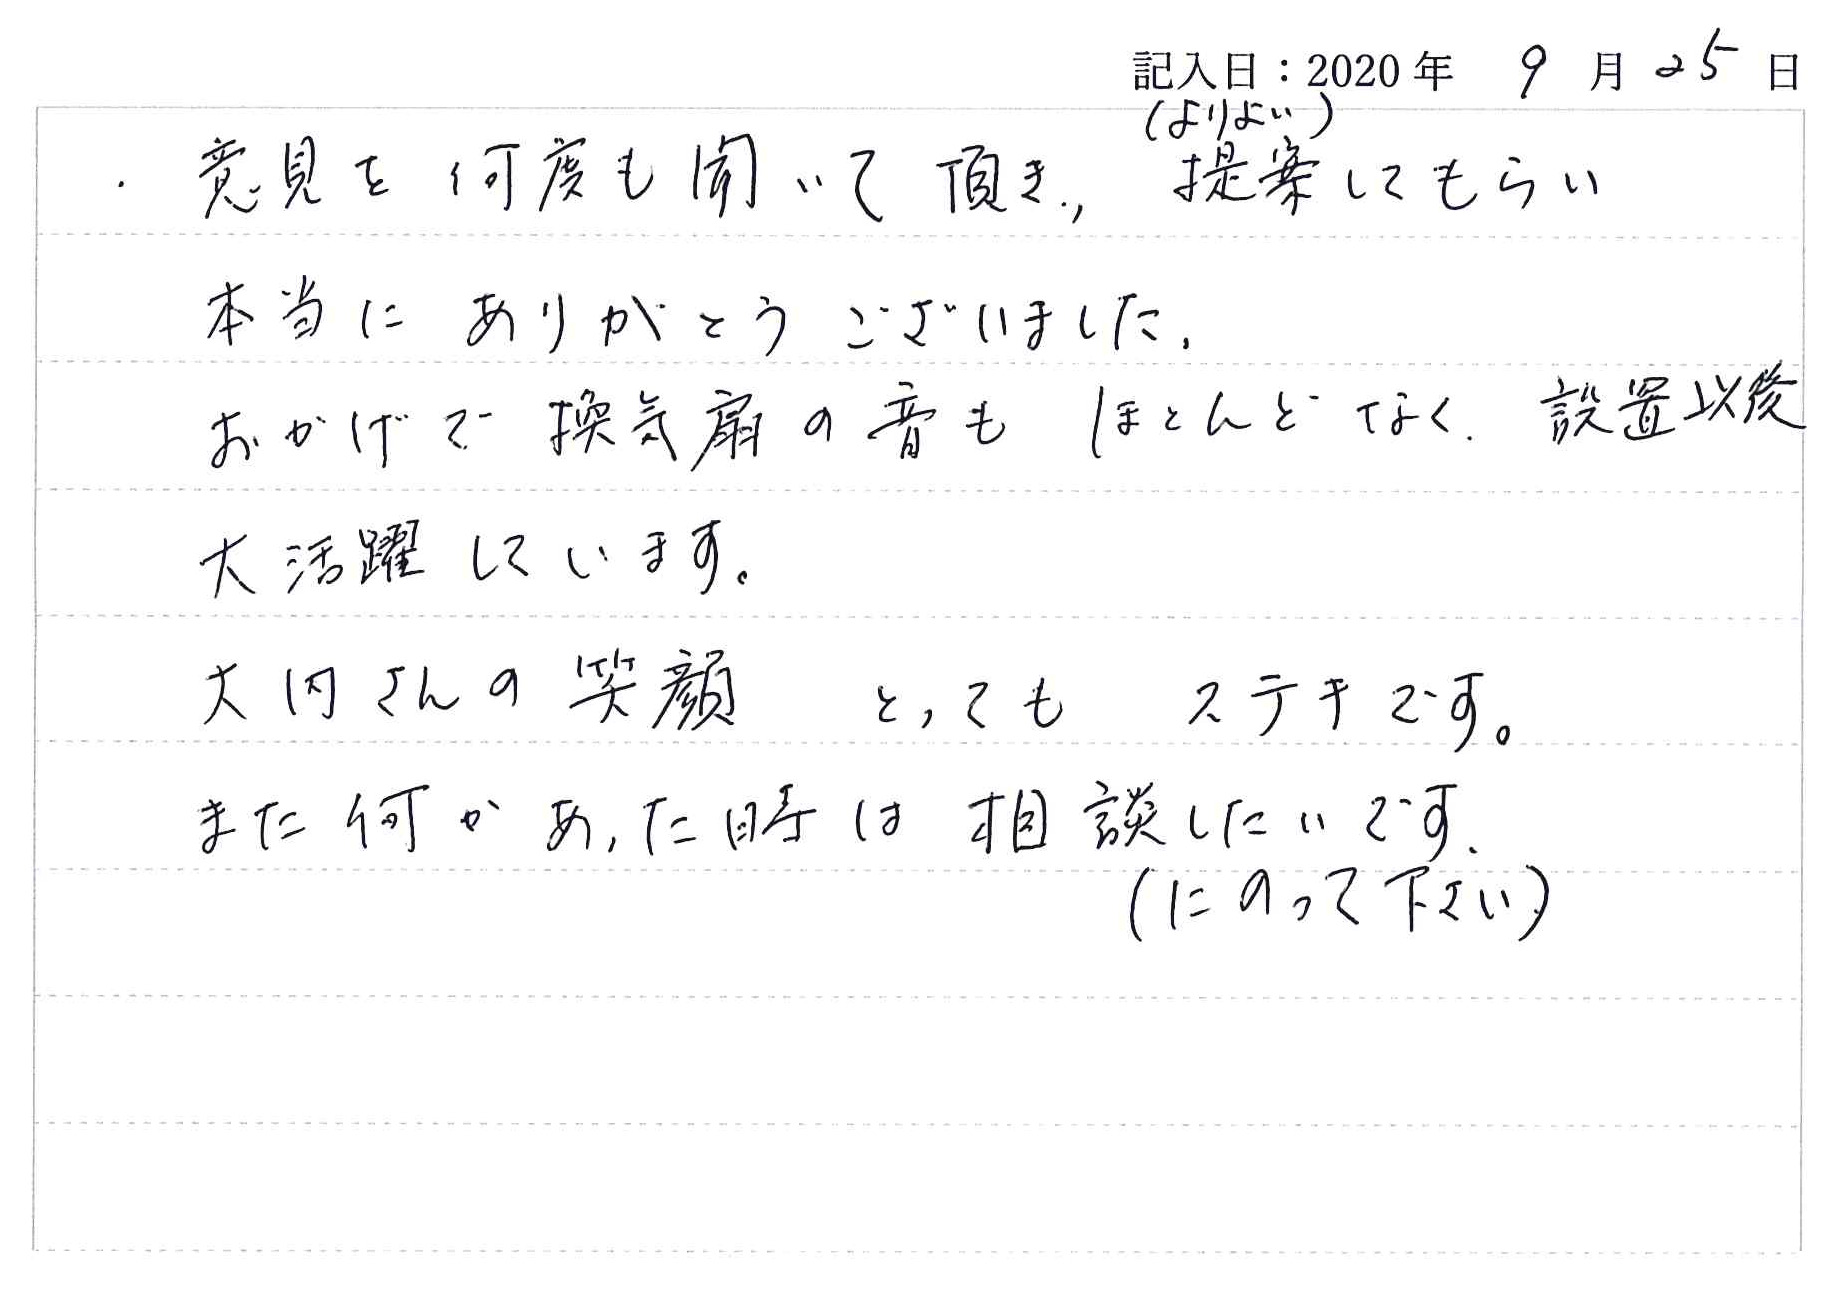 記入日：2020年 9月25日
(よりよい)
・意見を何度も聞いて頂き、提案してもらい
本当にありがとうございました。
おかげで換気扇の音もほとんどなく、設置以後
大活躍しています。
大内さんの笑顔 とっても ステキです。
また何かあった時は相談したいです。
(にのって下さい)